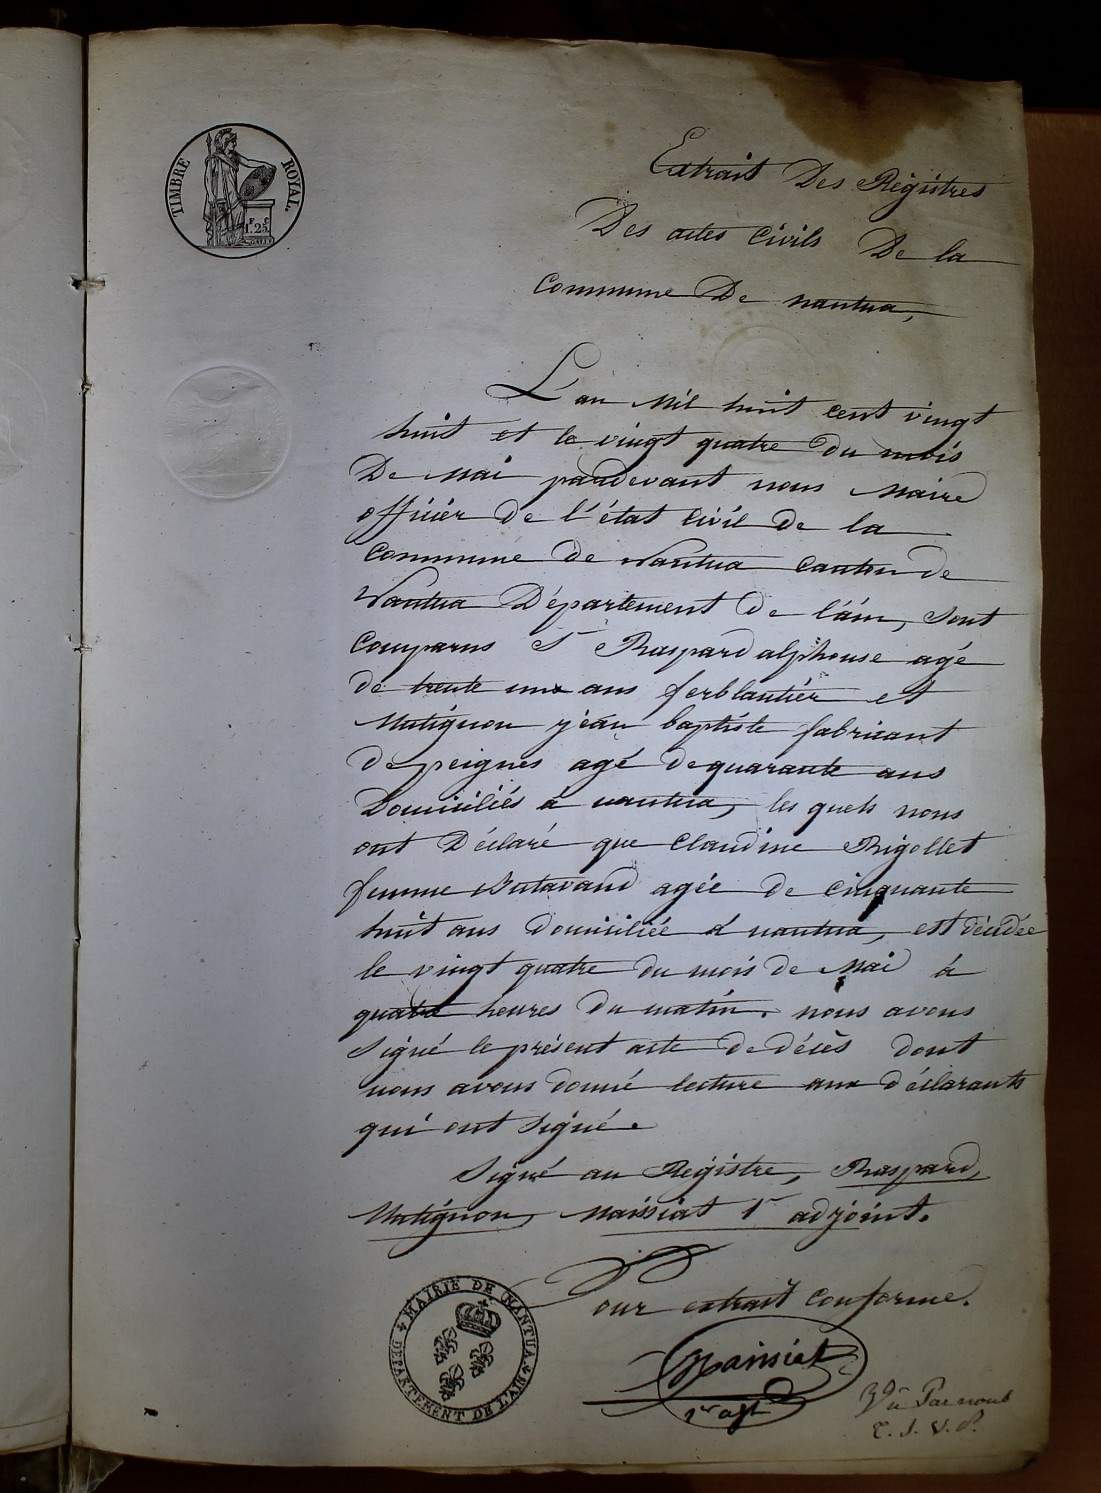 TIMBRE ROYAL.
1F 25c
Extrait Des Régistres
Des actes Civils De la
Commune De nantua,
L'an Mil huit cent vingt
huit et le vingt quatre Du mois
De Mai pardevant nous Maire
officier De l'état Civil De la
Commune De Nantua Canton De
Nantua Département De l'ain, sont
Comparus Sr Raspard alphonse agé
De trente un ans ferblantier et
Matignon jean baptiste fabricant
De peignes agé De quarante ans
Domiciliés à nantua, les quels nous
ont Déclaré que Claudine Rigollet
femme Butavand agée De Cinquante
huit ans Domiciliée à nantua, est Décédée
le vingt quatre Du mois De Mai à
quatre heures Du matin. nous avons
Signé le présent acte De Décès Dont
nous avons Donné lecture aux Déclarants
qui ont Signé.
Signé au Régistre, Raspard,
Matignon, Maissiat 1r adjoint.
Pour extrait Conforme.
Maissiat
1er adjt
MAIRIE DE NANTUA
DÉPARTEMENT DE L'AIN
Vu Par nous